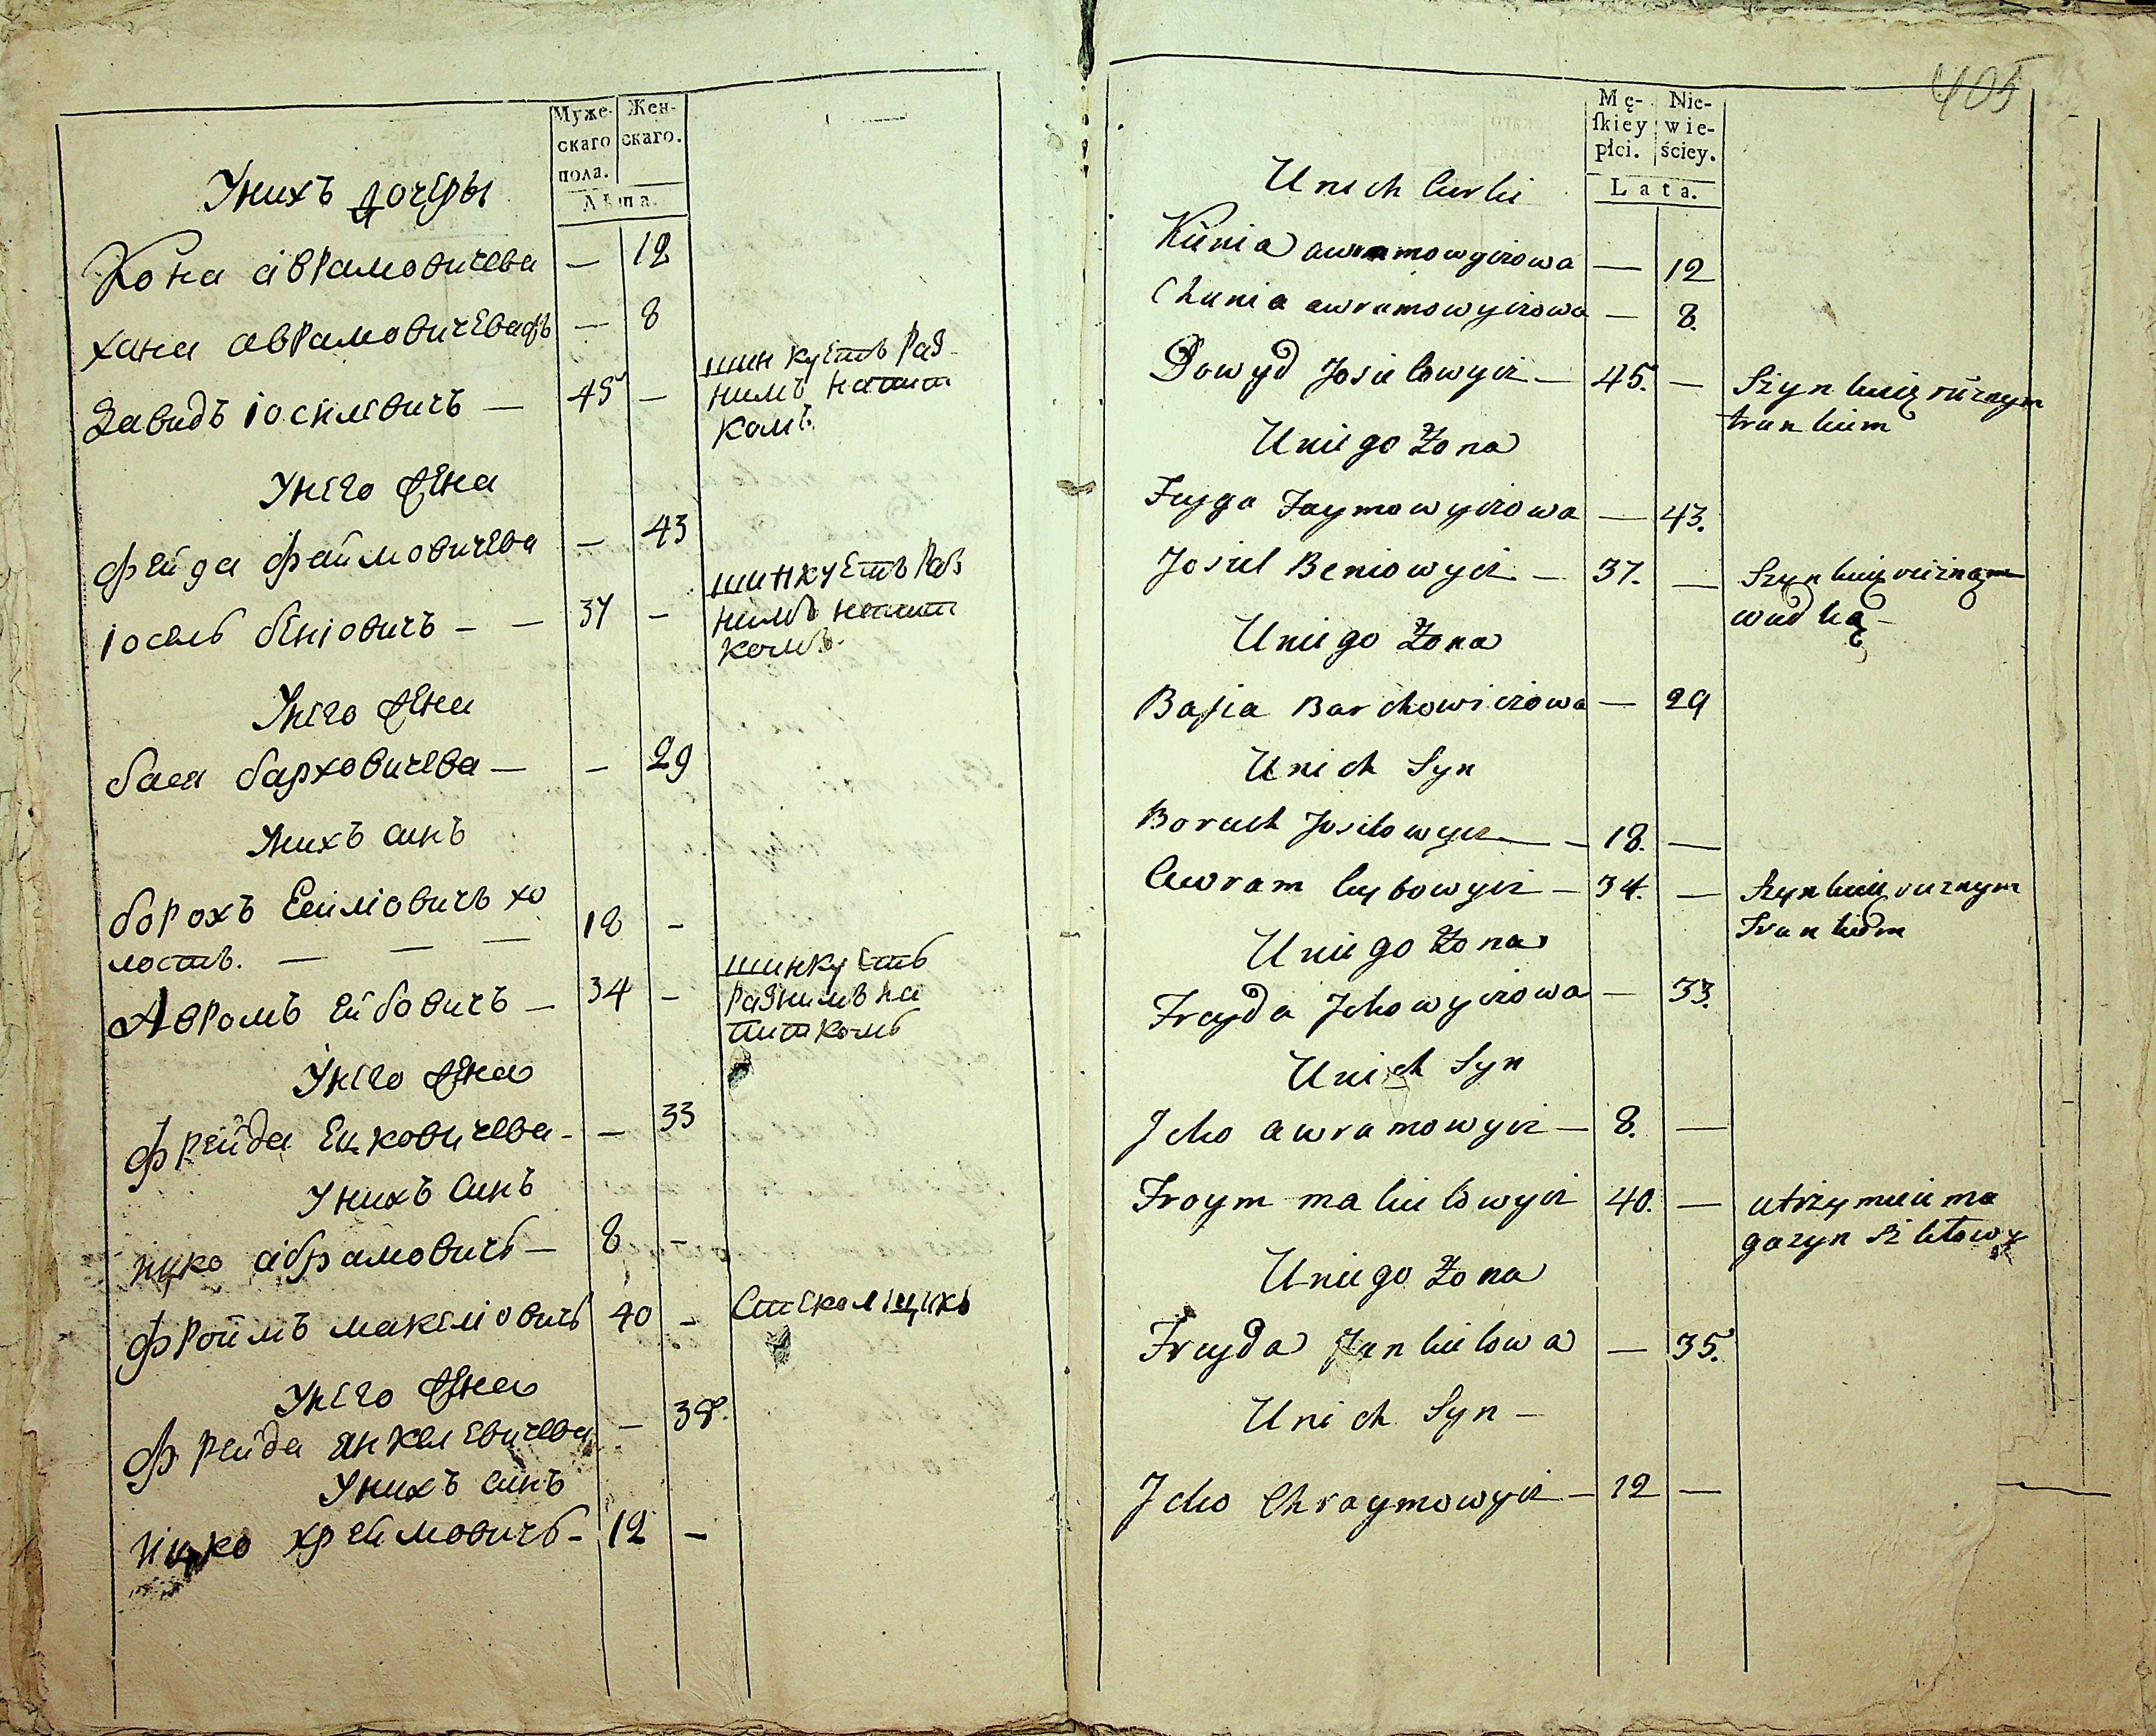 Муже-
скаго
пола.
Жен-
скаго.
Лѣта.
Унихъ дочеры
Кона авramовичева — 12
хана аврамовичевафъ — 8
Давидъ іосилевичъ — 45 —
шинкуетъ раз-
нимъ напит
комъ.
Унего жена
Фейга Файмовичева — 43
іосель беніовичъ — — 37 —
шинкуетъ раз
нимъ напит
комъ.
Унего жена
бася барховичева — — 29
Унихъ синъ
борохъ Есиліовичъ хо
лостъ. — — — 18 —
Авромъ Ейбовичъ — 34 —
шинкуеть
разнимъ на
питкомъ
Унего жена
Фрейда Ецковичева — — 33
Унихъ синъ
ицко абрамовичъ — 8 —
Фроимъ макеліовичъ 40 —
Стекольщикъ
Унего жена
Фрейда янкелевичева — 35.
Унихъ синъ
ицко хреймовичъ — 12 —
405
Mę-
ſkiey
płci.
Nie-
wie-
ściey.
Lata.
Unich Curki
Kunia awramowyczowa — 12
Chania awramowyczowa — 8.
Dowyd Josielowycz — 45. —
Szynkuię rużnym
trunkiem
Uniego Żona
Fejga Faymowyczowa — 43.
Josiel Beniowycz — 37. —
Szynkuię rużnąm
wudką —
Uniego Żona
Baſia Barchowiczowa — 29
Unich Syn
Boruch Josilowycz — 18. —
Awram Leybowycz — 34. —
Szynkuię rużnym
Trunkiem
Uniego Żona
Freyda Jckowyczowa — 33.
Unich Syn
Jcko awramowycz — 8. —
Froym makielowycz 40. —
utrzymuie ma
gazyn Szkłowy
Uniego Żona
Freyda Jankielowa — 35.
Unich Syn —
Jcko Chraymowycz — 12 —